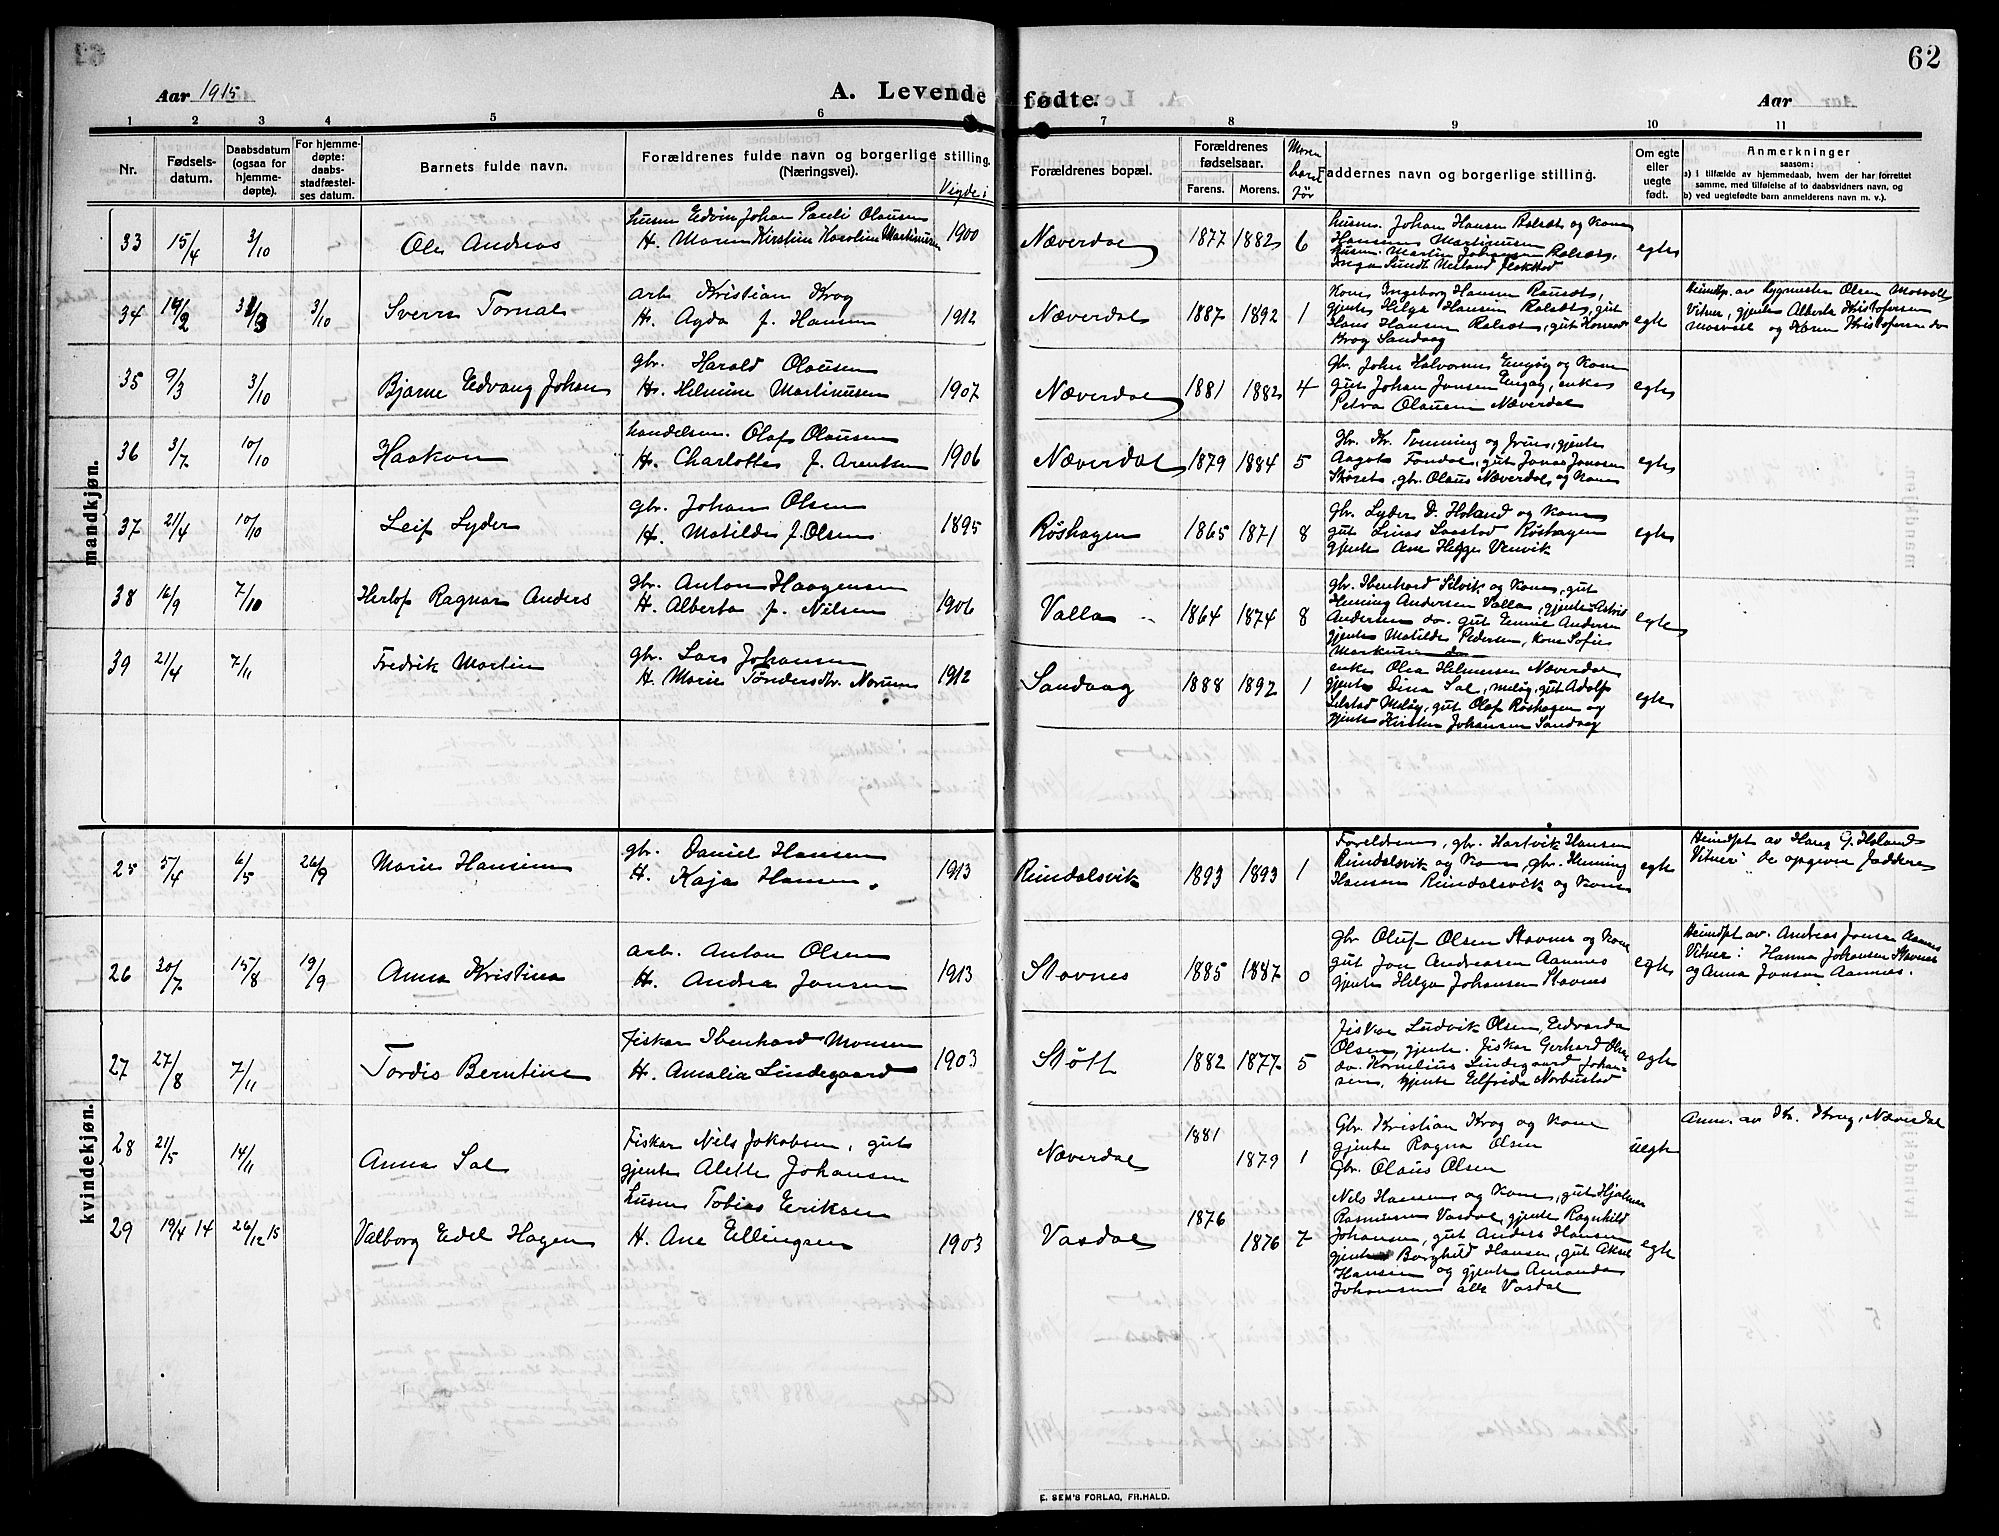 62
Aar 1915
A. Levende fødte.
Aar
1 2 3 4 5 6 7 8 9 10 11
Nr.
Fødsels-
datum.
Daabsdatum
(ogsaa for
hjemme-
døpte).
For hjemme-
døpte:
daabs-
stadfæstel-
ses datum.
Barnets fulde navn.
Forældrenes fulde navn og borgerlige stilling.
(Næringsvei).
Vigde i
Forældrenes bopæl.
Forældrenes
fødselsaar.
Farens. Morens.
Faddernes navn og borgerlige stilling.
Om egte
eller
uegte
født.
Anmerkninger
saasom:
a) i tilfælde av hjemmedaab, hvem der har forrettet
samme, med tilføielse af to daabsvidners navn, og
b) ved uegtefødte barn anmelderens navn m. v.).
mandkjøn.
33 15/4 3/10 Ole Andreas
husm Edvin Johan Pauli Olausen
H. Maren Kirstine Karoline Martinusen
1900 Næverdal 1877 1882 6
husm. Johan Hansen Ralsæt og Kone
Hansine Martinusen
husm. Martin Johansen Ralsæt,
egte
34 14/2 3/10 Sverre Tornal
arb Kristian Krog
H. Agda f. Hansen
1912 Næverdal 1887 1892 1
Kone Ingeborg Hansen
gjente Helga Hansen Ralsæt, gut
Hans Hansen Ralsæt, gut
Krog Sandaag
egte
Olsen Mosvoll
Vitner, gjente Alberta Kristofersen
Mosvoll og Karen Kristofersen do
35 9/3 3/10 Bjarne Edvang Johan
gbr. Harald Olausen
H. Helmine Martinusen
1907 Næverdal 1881 1882 4
Gbr. John Halvorsen Engøy og Kone
gut Johan Jonsen Engøy, enke
Petra Olausen Næverdal
egte
36 3/7 10/10 Haakon
handelsm. Olaf Olausen
H. Charlotte f. Arentsen
1906 Næverdal 1879 1884 5
Hr. Kr. Tonning og frue, gjente
Aagot Fondal, gut Jonas Jonassen
gbr. Olaus Næverdal og Kone
egte
37 21/4 10/10 Leif Lyder
gbr. Johan Olsen
H. Matilde f. Olsen
1895 Røshagen 1865 1871 8
gbr. Lyder D. Holand og Kone
gut Linus Røshagen
gjente Ane Helgs Venvik
egte
38 16/9 7/10 Herlof Ragnar Anders
gbr. Anton Haagensen
H. Alberta f. Nilsen
1906 Valla 1864 1874 8
gbr. Ibenhard Selvik og Kone, gut
Heming Andersen Valla, gjente Astrid
Andersen do. gut Emil Andersen
gjente Matilde Pedersen, Kone Sofie
Markusen do
egte
39 21/4 7/11 Fredrik Martin
gbr. Lars Johansen
H. Marie Tøndersdtr. Norum
1912 Sandaag 1888 1892 1
enke Olea Helmesen Næverdal
gjente Dina Sal, Meløy, gut Adolf
Selstad Meløy, gut Olaf Røshagen og
gjente Kirsten Johansen Sandaag
egte
kvindekjøn.
25 5/4 6/5 26/9 Marie Hansine
gbr. Daniel Hansen
H. Kaja Hansen.
1913 Reindalsvik 1893 1893 1
Foreldrene, gbr. Hartvik Hansen
Reindalsvik og Kone, gbr. Heming
Hansen Reindalsvik og Kone
egte
Heimdpt av Hans G. Holand
Vitner: De opgivne faddere
26 20/7 15/8 19/9 Anna Kristine
arb. Anton Olsen
H. Andrea Jonsen
1913 Stavnes 1885 1887 0
gbr Oluf Olsen Stavnes og Kone
gut Jon Andreasen Aamnes
gjente Helga Johansen Stavnes
egte
Heimdpt av. Andreas Jonsen Aamnes
Vitner: Hanna Johansen Stavnes
og Anna Jonsen Aamnes.
27 27/8 7/11 Tordis Berntine
fiskar Ibenhard Monsen
H. Amalia Lindegaard
1903 Støtt 1882 1877 5
fiskar Ludvik Olsen, Edvarda
Olsen, gjente. fiskar Gerhard
do. Kornelius Lindegaard Johan-
sen, gjente Elfrida Norbustad
egte
28 21/5 14/11 Anna Sal
Fiskar Nils Jakobsen, gut
gjente Alette Johansen
Næverdal 1881 1879 1
Gbr. Kristian Krog og Kone
gjente Ragna Olsen
Gbr. Olaus Olsen
uegte
Anm. av Kr. Krog, Næverdal
29 19/4 14 26/12 15 Valborg Edel Hagen
husm Tobias Eriksen
H. Ane Ellingsen
1903 Vasdal 1876 1876 7
Nels Hansen og Kone, gut Hjalmar
Rasmusen Vasdal, gjente Ragnhild
Johansen, gut Anders Hansen
gjente Borghild Hansen, gut Aksel
Hansen og gjente Amanda
Johansen alle Vasdal
egte
E. SEM'S FORLAG, FR.HALD.